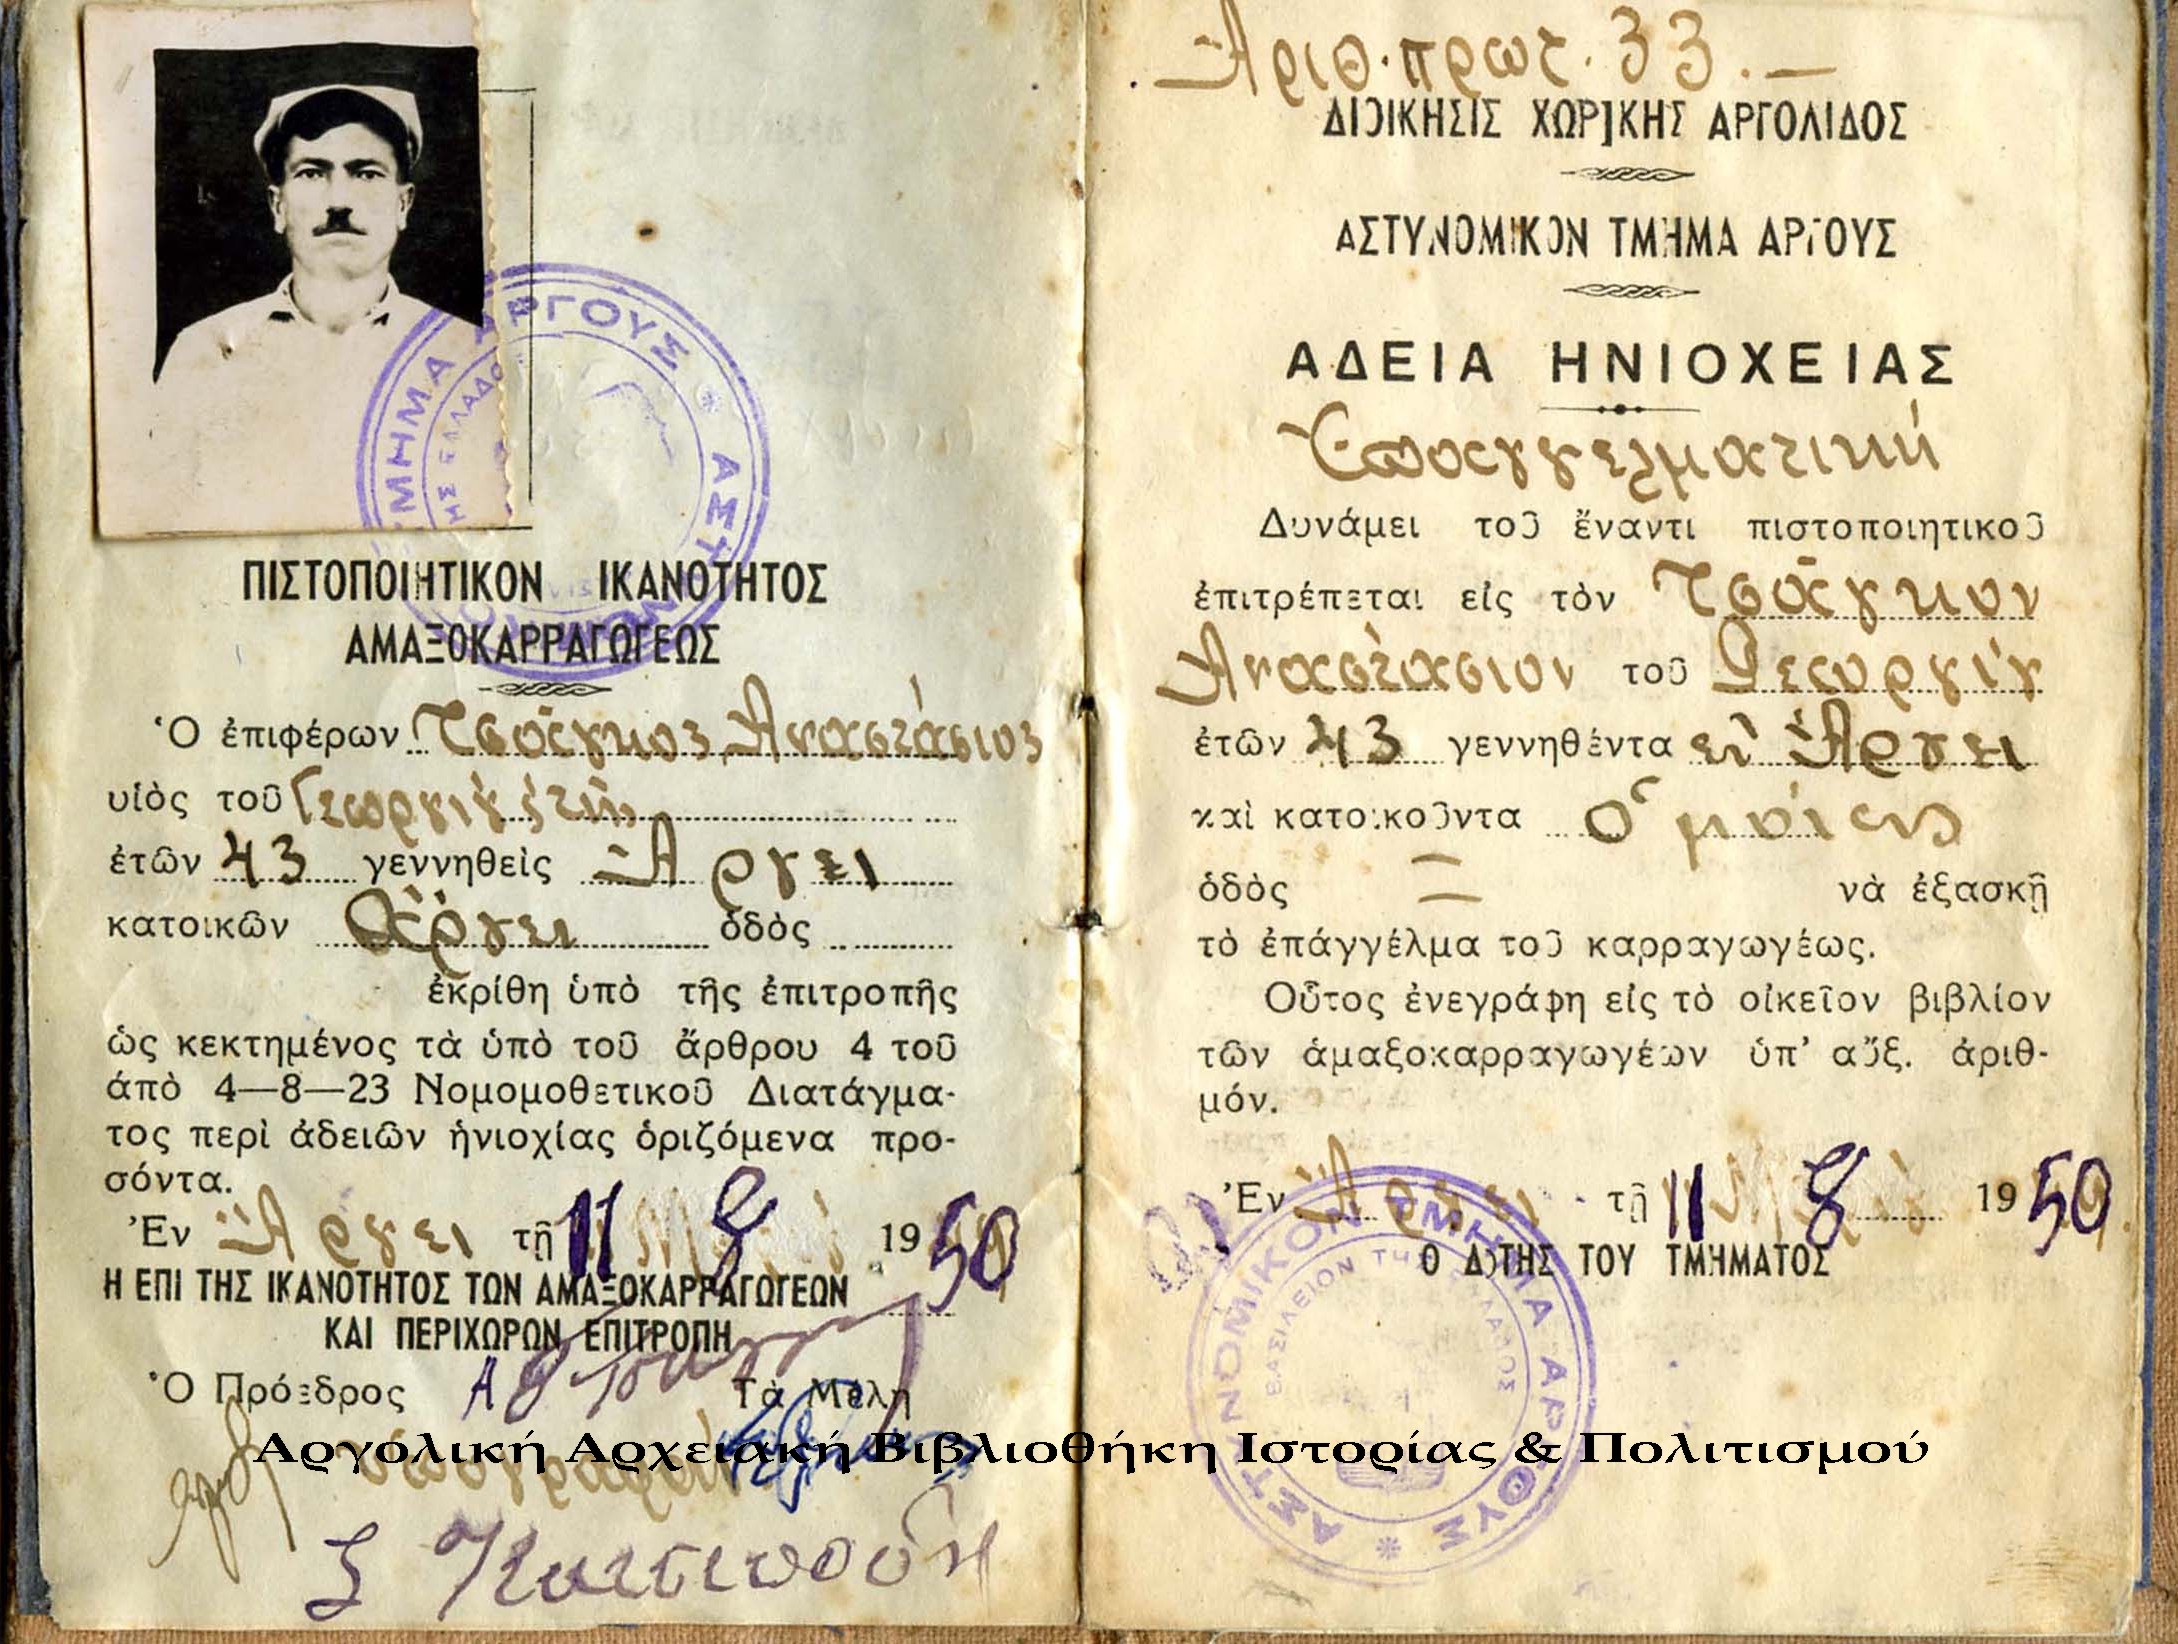 ΠΙΣΤΟΠΟΙΗΤΙΚΟΝ ΙΚΑΝΟΤΗΤΟΣ
ΑΜΑΞΟΚΑΡΡΑΓΩΓΕΩΣ
Ὁ ἐπιφέρων Τσάγκος Ἀναστάσιος
υἱὸς τοῦ
ἐτῶν 43 γεννηθεὶς Ἄργει
κατοικῶν Ἄργει ὁδὸς
ἐκρίθη ὑπὸ τῆς ἐπιτροπῆς
ὡς κεκτημένος τὰ ὑπὸ τοῦ ἄρθρου 4 τοῦ
ἀπὸ 4—8—23 Νομομοθετικοῦ Διατάγμα-
τος περὶ ἀδειῶν ἡνιοχίας ὁριζόμενα προ-
σόντα.
Ἐν Ἄργει τῇ 11 8 1950
Η ΕΠΙ ΤΗΣ ΙΚΑΝΟΤΗΤΟΣ ΤΩΝ ΑΜΑΞΟΚΑΡΡΑΓΩΓΕΩΝ
ΚΑΙ ΠΕΡΙΧΩΡΩΝ ΕΠΙΤΡΟΠΗ
Ὁ Πρόεδρος Τὰ Μέλη
Αριθ. πρωτ. 33.—
ΔΙΟΙΚΗΣΙΣ ΧΩΡ]ΚΗΣ ΑΡΓΟΛΙΔΟΣ
ΑΣΤΥΝΟΜΙΚΟΝ ΤΜΗΜΑ ΑΡΓΟΥΣ
ΑΔΕΙΑ ΗΝΙΟΧΕΙΑΣ
Ἐπαγγελματική
Δυνάμει τοῦ ἔναντι πιστοποιητικοῦ
ἐπιτρέπεται εἰς τὸν Τσάγκον
Ἀναστάσιον τοῦ Γεωργίου
ἐτῶν 43 γεννηθέντα εἰς Ἄργει
καὶ κατοικοῦντα ὁμοίως
ὁδὸς = νὰ ἐξασκῇ
τὸ ἐπάγγέλμα τοῦ καρραγωγέως.
Οὗτος ἐνεγράφη εἰς τὸ οἰκεῖον βιβλίον
τῶν ἁμαξοκαρραγωγέων ὑπ’ αὔξ. ἀριθ-
μόν.
Ἐν Ἄργει τῇ 11 8 1950
Ο Δ)ΤΗΣ ΤΟΥ ΤΜΗΜΑΤΟΣ
ΑΣΤΥΝΟΜΙΚΟΝ ΤΜΗΜΑ ΑΡΓΟΥΣ
ΒΑΣΙΛΕΙΟΝ ΤΗΣ ΕΛΛΑΔΟΣ
Αργολική Αρχειακή Βιβλιοθήκη Ιστορίας & Πολιτισμού